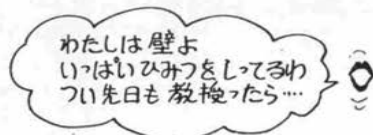 わたしは壁よ
いっぱいひみつをしってるわ
つい先日も教授ったら····